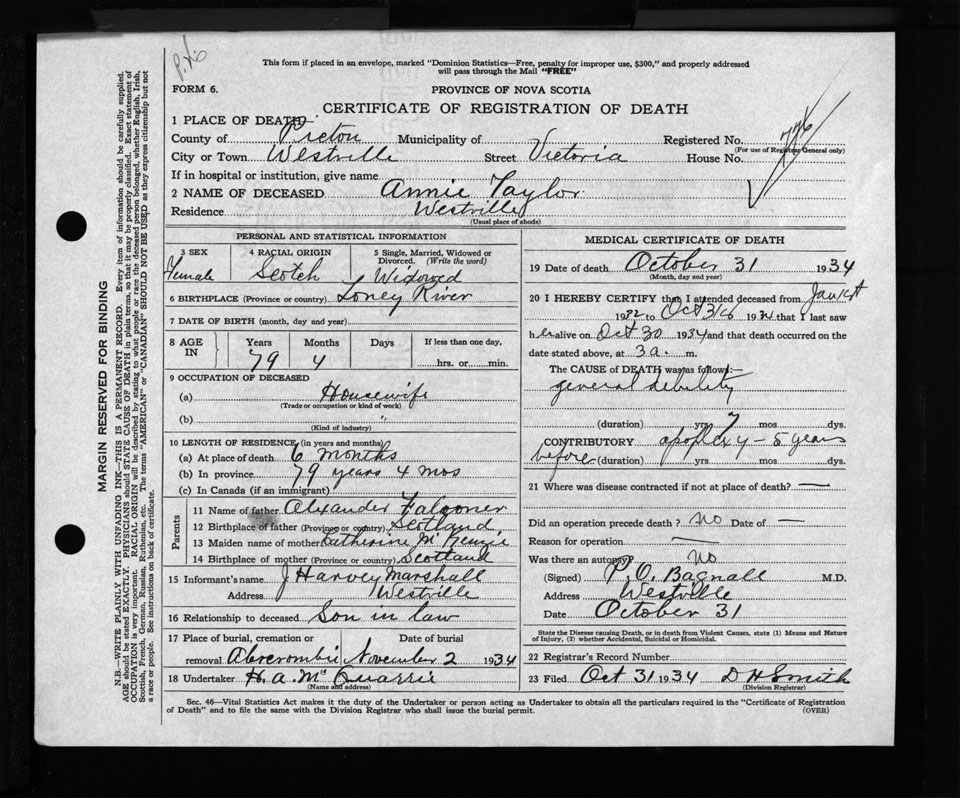 This form if placed in an envelope, marked "Dominion Statistics—Free, penalty for improper use, $300," and properly addressed
will pass through the Mail "FREE"
FORM 6.
PROVINCE OF NOVA SCOTIA
CERTIFICATE OF REGISTRATION OF DEATH
1 PLACE OF DEATH—
County of Pictou Municipality of Registered No. 776
(For use of Registrar General only)
City or Town Westville Street Victoria House No.
If in hospital or institution, give name
2 NAME OF DECEASED Annie Taylor
Residence Westville
(Usual place of abode)
PERSONAL AND STATISTICAL INFORMATION
3 SEX 4 RACIAL ORIGIN 5 Single, Married, Widowed or Divorced. (Write the word)
Female Scotch Widowed
6 BIRTHPLACE (Province or country) Toney River
7 DATE OF BIRTH (month, day and year)
8 AGE IN Years Months Days If less than one day,
79 4 hrs. or min.
9 OCCUPATION OF DECEASED
(a) Housewife
(Trade or occupation or kind of work)
(b) "
(Kind of industry)
10 LENGTH OF RESIDENCE (in years and months)
(a) At place of death 6 months
(b) In province 79 years 4 mos
(c) In Canada (if an immigrant)
Parents
11 Name of father Alexander Falconer
12 Birthplace of father (Province or country) Scotland
13 Maiden name of mother Katherine McKenzie
14 Birthplace of mother (Province or country) Scotland
15 Informant's name J Harvey Marshall
Address Westville
16 Relationship to deceased Son in law
17 Place of burial, cremation or removal Date of burial
Abercrombie November 2 1934
18 Undertaker H. A. McQuarrie
(Name and address)
MEDICAL CERTIFICATE OF DEATH
19 Date of death October 31 1934
(Month, day and year)
20 I HEREBY CERTIFY that I attended deceased from Jan 1st
1932 to Oct 31st 1934 that I last saw
her alive on Oct 30 1934 and that death occurred on the
date stated above, at 3 a. m.
The CAUSE of DEATH was as follows:—
general debility
(duration) yrs. ? mos. dys.
CONTRIBUTORY apoplexy – 5 years
before (duration) yrs. mos. dys.
21 Where was disease contracted if not at place of death? —
Did an operation precede death? No Date of —
Reason for operation —
Was there an autopsy? No
(Signed) P. O. Bagnall M.D.
Address Westville
Date October 31
State the Disease causing Death, or in death from Violent Causes, state (1) Means and Nature
of Injury, (2) whether Accidental, Suicidal or Homicidal.
22 Registrar's Record Number
23 Filed Oct 31 1934 D H Smith
(Division Registrar)
Sec. 46—Vital Statistics Act makes it the duty of the Undertaker or person acting as Undertaker to obtain all the particulars required in the "Certificate of Registration
of Death" and to file the same with the Division Registrar who shall issue the burial permit. (OVER)
MARGIN RESERVED FOR BINDING
N.B.—WRITE PLAINLY WITH UNFADING INK—THIS IS A PERMANENT RECORD. Every item of information should be carefully supplied.
AGE should be stated EXACTLY. PHYSICIANS should STATE CAUSE OF DEATH in plain terms, so that it may be properly classified. Exact statement of
OCCUPATION is very important. RACIAL ORIGIN will be described by stating to what people or race the deceased person belonged, whether English, Irish,
Scottish, French, German, Russian, Ruthenian, etc. The terms "AMERICAN" or "CANADIAN" SHOULD NOT BE USED as they express citizenship but not
a race or people. See instructions on back of certificate.